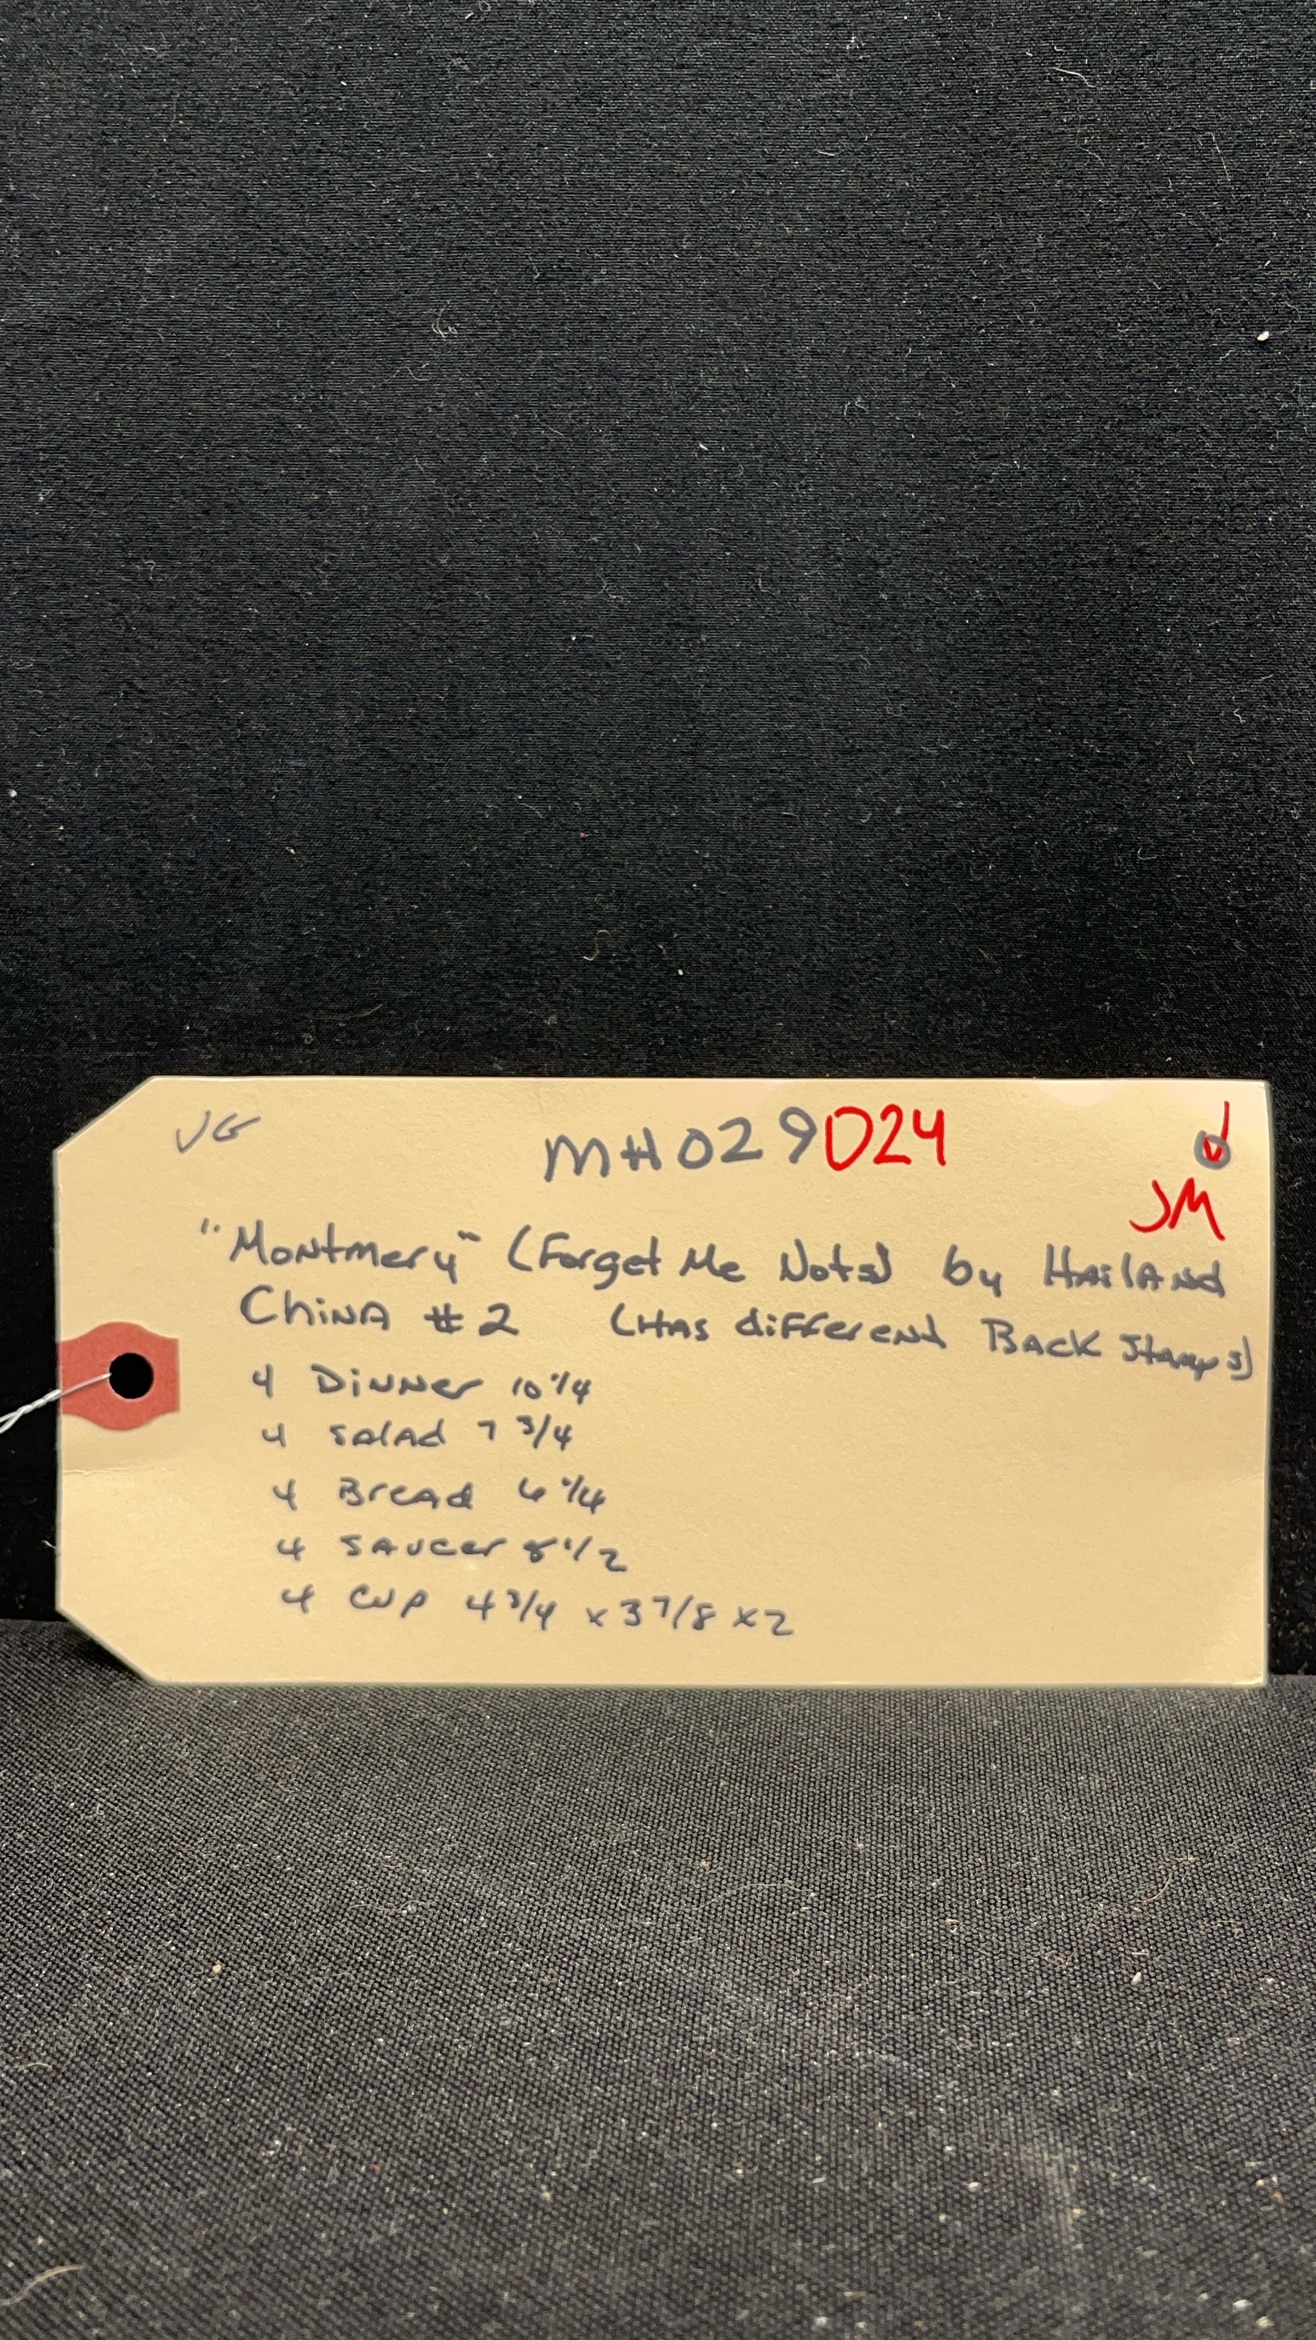 VG
MH029D24
JM
"Montmery" (Forget Me Nots) by Hailand
China #2 (Has different Back Stamps)
4 Dinner 10 1/4
4 Salad 7 3/4
4 Bread 6 1/4
4 Saucer 5 1/2
4 Cup 4 3/4 x 3 7/8 x 2